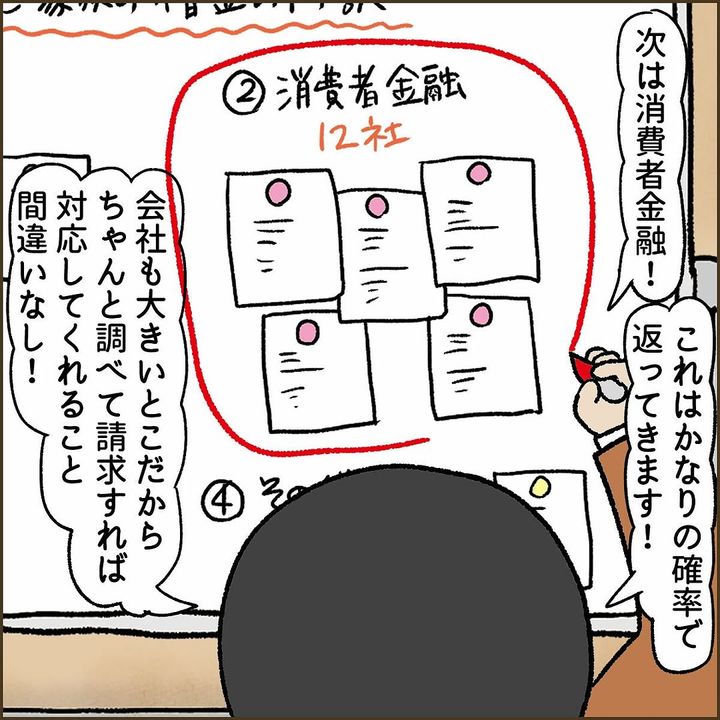 ②消費者金融
12社
次は消費者金融!
これはかなりの確率で
返ってきます!
会社も大きいとこだから
ちゃんと調べて請求すれば
対応してくれること
間違いなし!
④その